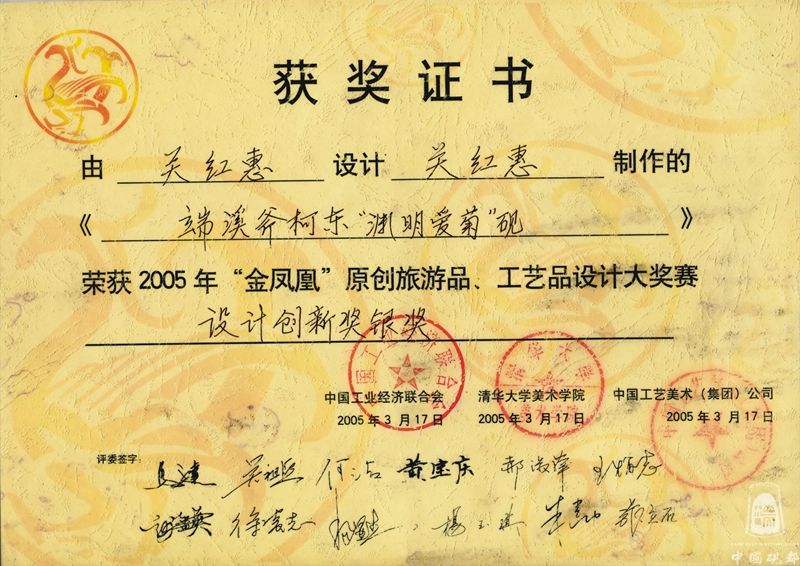 获奖证书
由 关红惠 设计 关红惠 制作的
《 端溪斧柯东“渊明爱菊”砚 》
荣获 2005 年 “金凤凰” 原创旅游品、工艺品设计大奖赛
设计创新奖银奖
中国工业经济联合会 清华大学美术学院 中国工艺美术（集团）公司
2005 年 3 月 17 日 2005 年 3 月 17 日 2005 年 3 月 17 日
评委签字：
何洁 黄宝庆
中国砚都